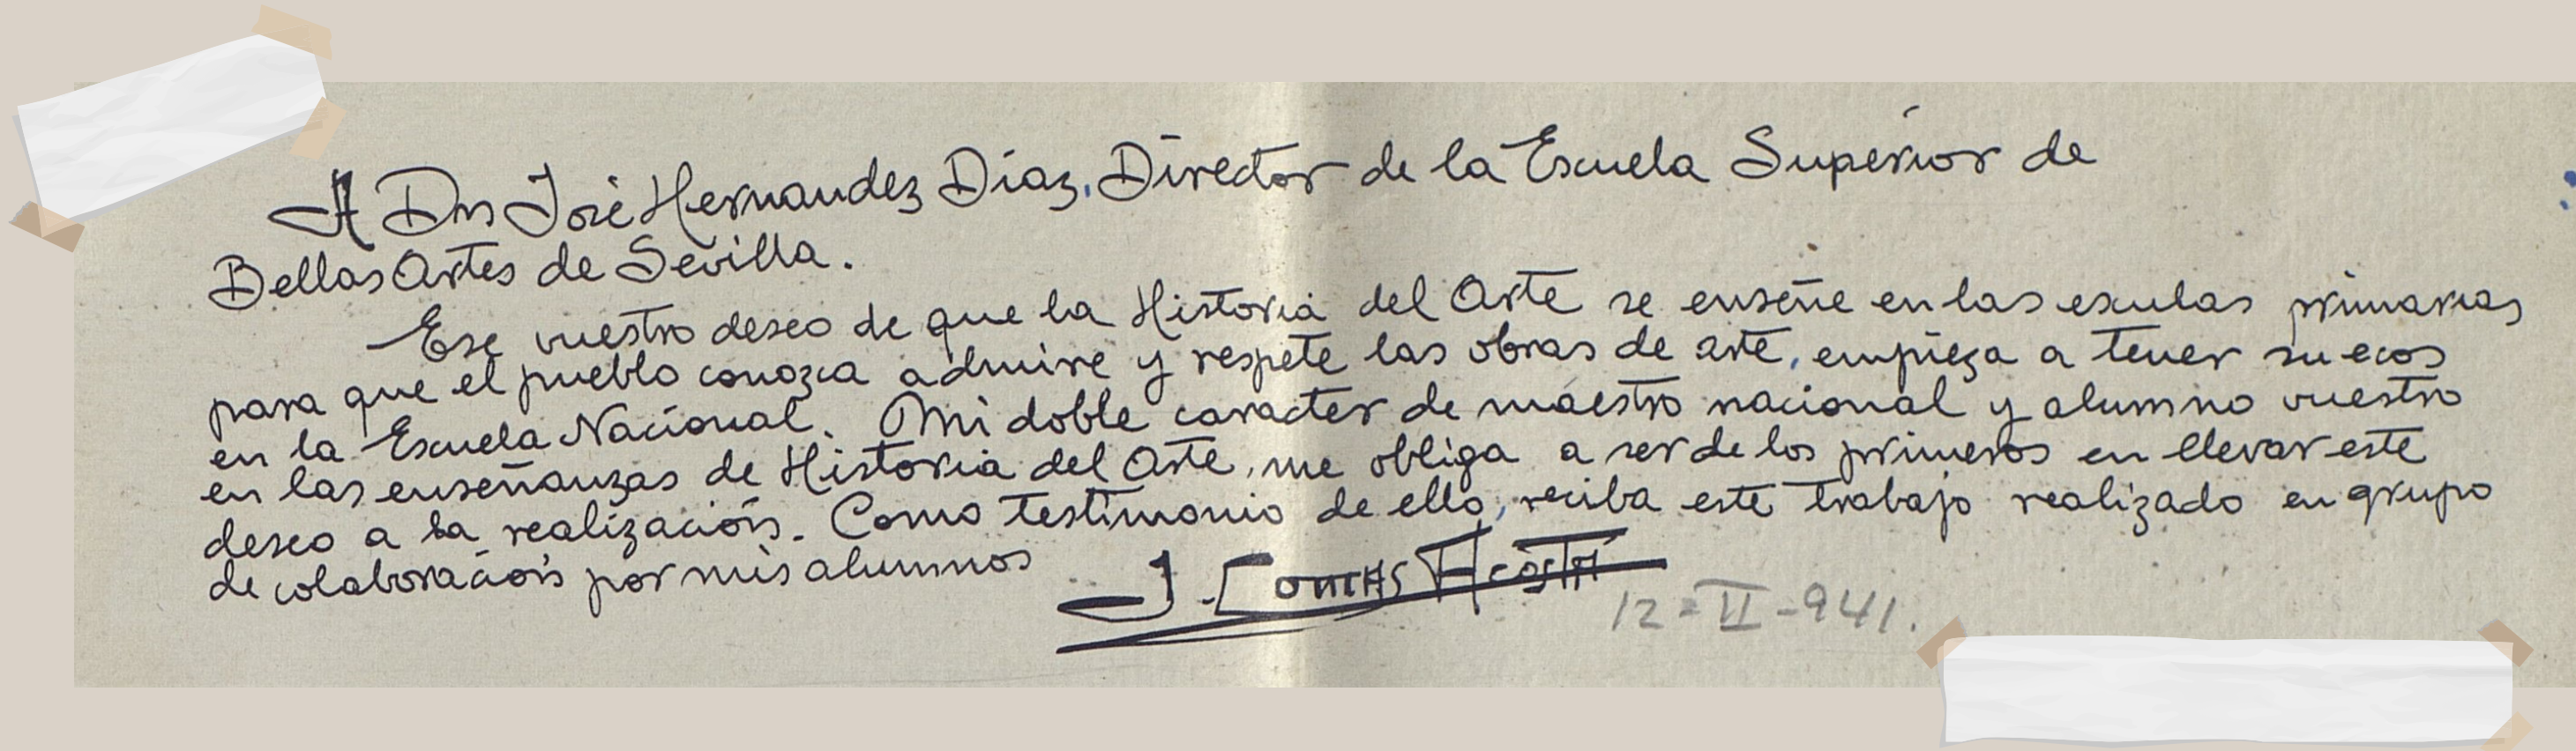 A Dn José Hernandez Díaz, Director de la Escuela Superior de
Bellas Artes de Sevilla.
Ese vuestro deseo de que la Historia del Arte se enseñe en las esculas primarias
para que el pueblo conozca admire y respete las obras de arte, empieza a tener su ecos
en la Escuela Nacional. Mi doble caracter de maestro nacional y alumno vuestro
en las enseñanzas de Historia del Arte, me obliga a ser de los primeros en llevar este
deseo a la realización. Como testimonio de ello, reciba este trabajo realizado en grupo
de colaboración por mis alumnos
J. Comas Acosta
12-II-941.